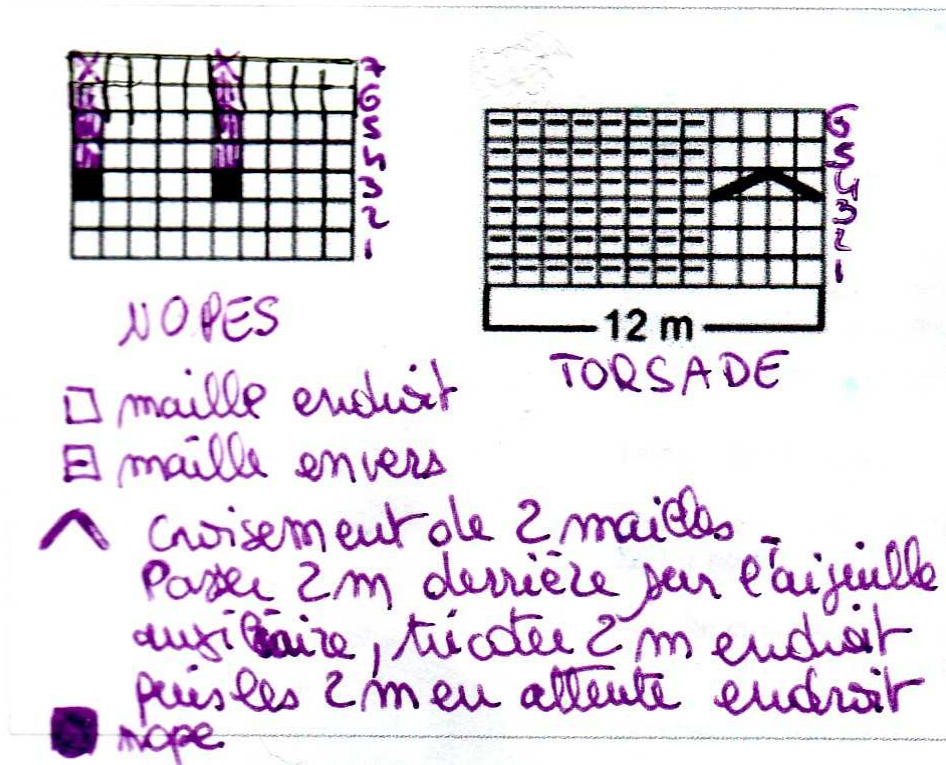 7
6
5
4
3
2
1
NOPES
6
5
4
3
2
1
12 m
TORSADE
maille endroit
maille envers
croisement de 2 mailles -
Passer 2 m derrière sur l'aiguille
auxiliaire, tricoter 2 m endroit
puis les 2 m en attente endroit
nope